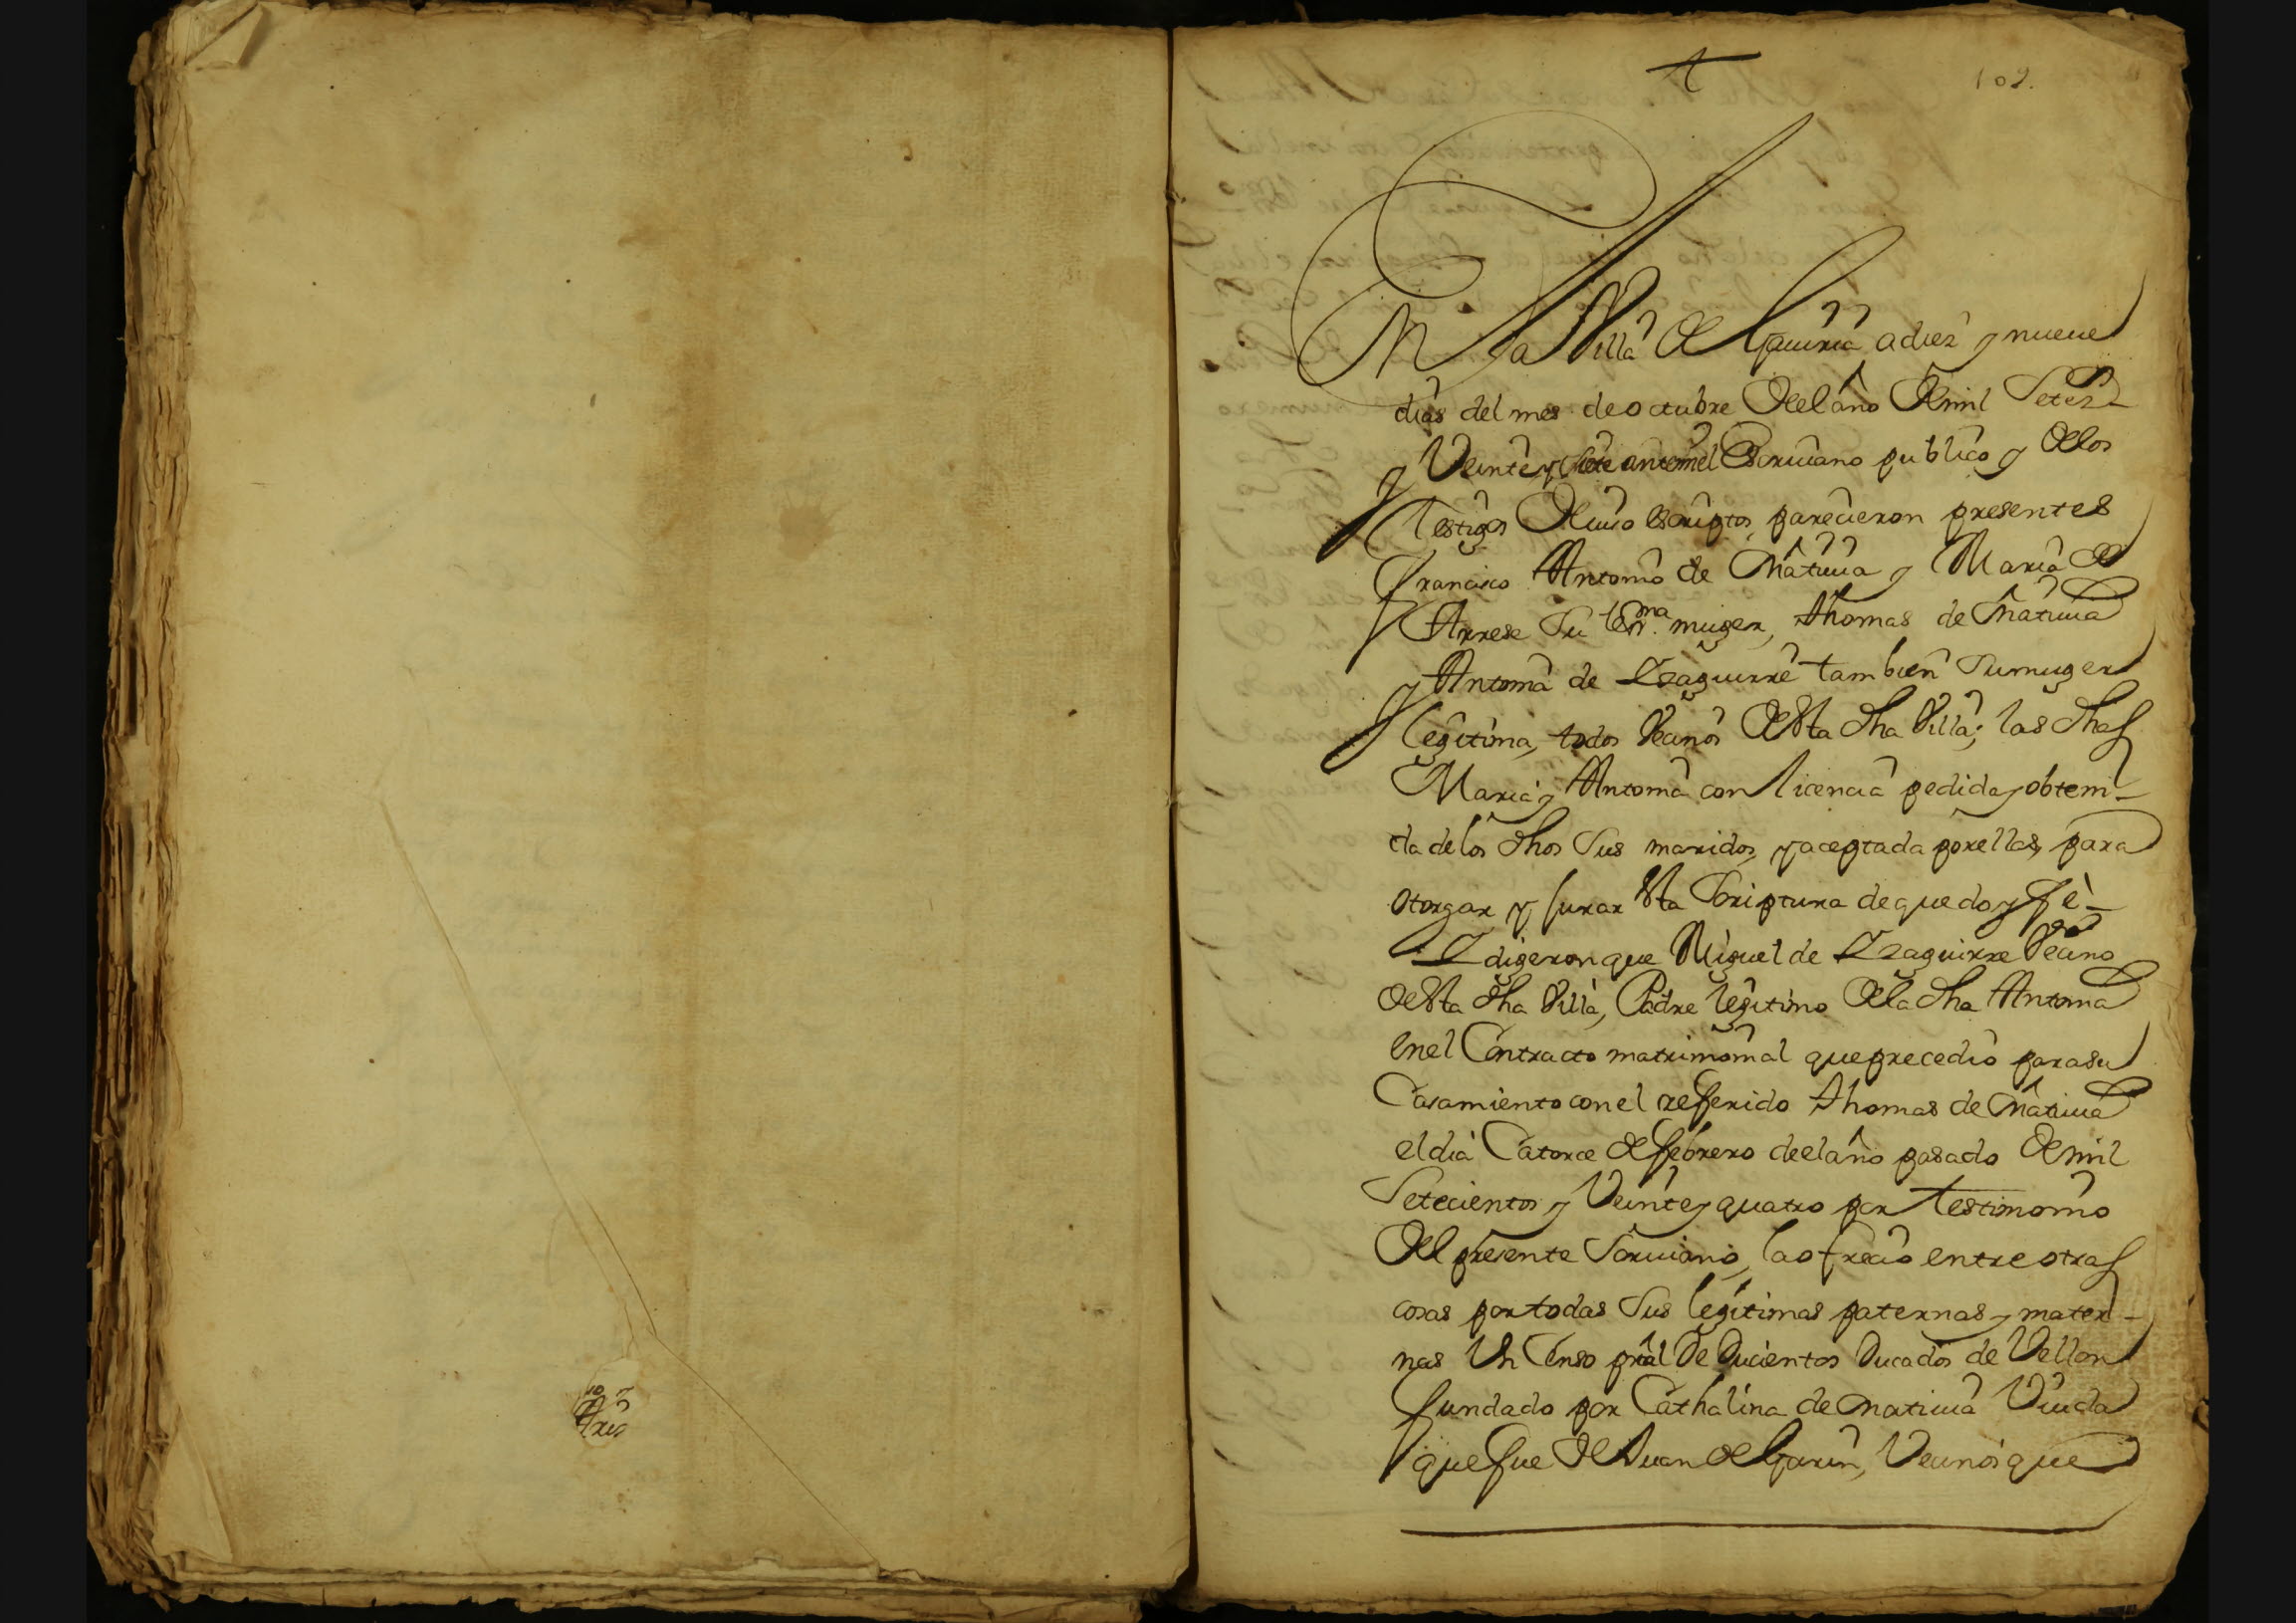 102.
En la Villa de Gauiria a diez y nueue
dias del mes de octubre del año de mil Setez.
y Veinte y siete ante mi el Escriuano publico y de los
testigos de iuso escriptos, parecieron presentes
Francisco Antonio de Matiuia y Maria de
Arrese su legma. muger, Thomas de Matiuia
y Antonia de Yzaguirre tambien su muger
legitima, todos Vecinos de esta dha Villa; las dhas
Maria y Antonia con licencia pedida y obteni-
da de los dhos sus maridos, y aceptada por ellas, para
otorgar y jurar esta Scriptura de que doy fè-
Y digeron que Miguel de Yzaguirre Vecino
de esta dha Villa, Padre legitimo de la dha Antonia
en el Contracto matrimonial que precediò para su
Casamiento con el refferido Thomas de Matiuia
el dia Catorce de febrero de el año pasado de mil
Setecientos y Veinte y quatro por testimonio
del presente Scriuano, la ofrecio entre otras
cosas por todas sus legitimas paternas y mater-
nas Un Censo pral de Ducientos Ducados de Vellon
fundado por Cathalina de Matiuia Viuda
que fue de Juan de Garin, Vecinos que